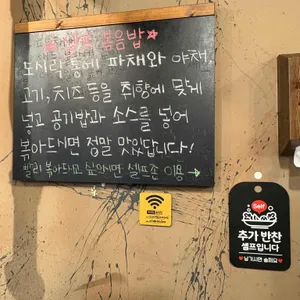 ★셀프 볶음밥★
도시락통에 파채와 야채,
고기, 치즈 등을 취향에 맞게
넣고 공기밥과 소스를 넣어
볶아드시면 정말 맛있답니다!
빨리 볶아드시고 싶으시면 셀프존 이용 →
Self
추가 반찬
셀프입니다
♥남기시면 슬퍼요♥